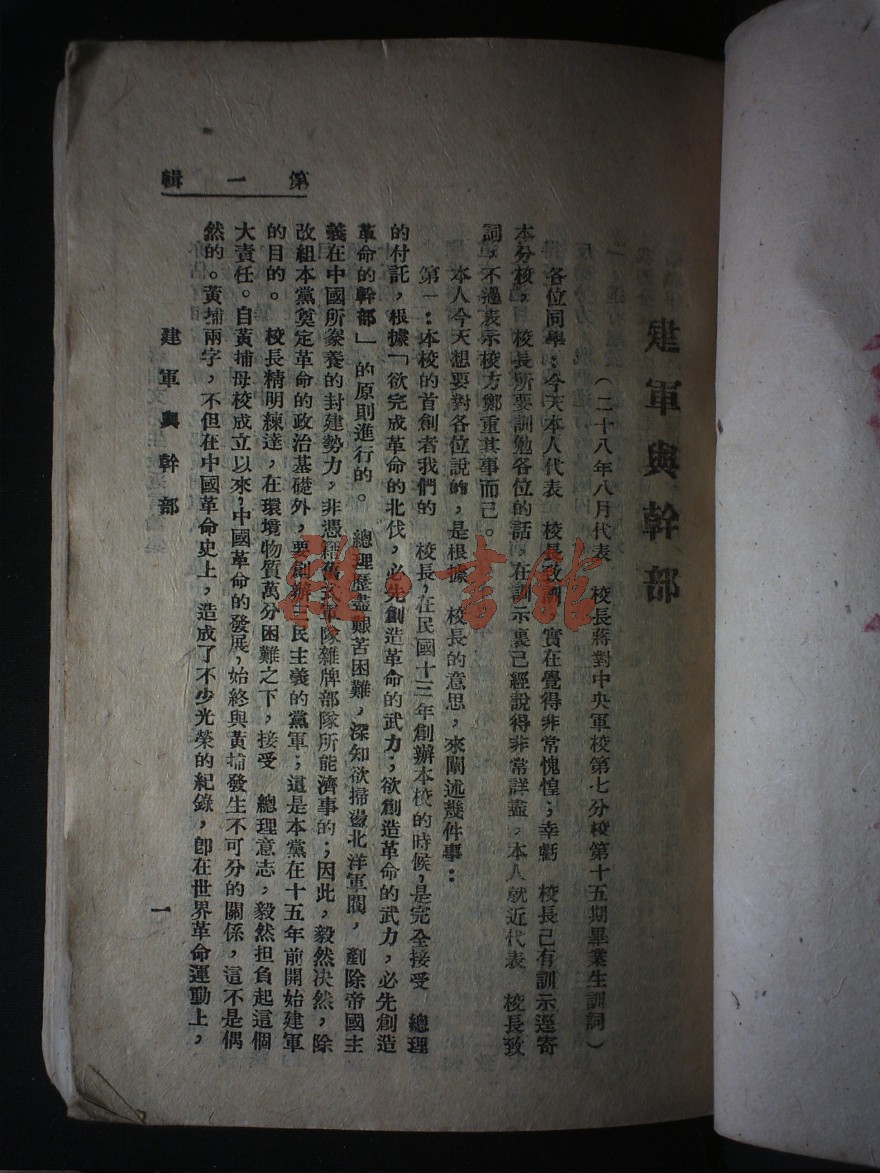 建軍與幹部
（二十八年八月代表　校長蔣對中央軍校第七分校第十五期畢業生訓詞）
各位同學：今天本人代表　校長致訓，實在覺得非常愧惶；幸虧　校長已有訓示逕寄
本分校，　校長所要訓勉各位的話，在訓示裏已經說得非常詳盡，本人就近代表　校長致
詞，不過表示校方鄭重其事而已。
本人今天想要對各位說的，是根據　校長的意思，來闡述幾件事：
第一：本校的首創者我們的　校長，在民國十三年創辦本校的時候，是完全接受　總理
的付託，根據「欲完成革命的北伐，必先創造革命的武力；欲創造革命的武力，必先創造
革命的幹部」的原則進行的。　總理歷盡艱苦困難，深知欲掃盪北洋軍閥，剷除帝國主
義在中國所豢養的封建勢力，非憑藉舊式軍隊雜牌部隊所能濟事的；因此，毅然決然，除
改組本黨奠定革命的政治基礎外，要創辦三民主義的黨軍；這是本黨在十五年前開始建軍
的目的。　校長精明練達，在環境物質萬分困難之下，接受　總理意志，毅然担負起這個
大責任。自黃埔母校成立以來，中國革命的發展，始終與黃埔發生不可分的關係，這不是偶
然的。黃埔兩字，不但在中國革命史上，造成了不少光榮的紀錄，卽在世界革命運動上，
第一輯
建軍與幹部
一
雜·書館